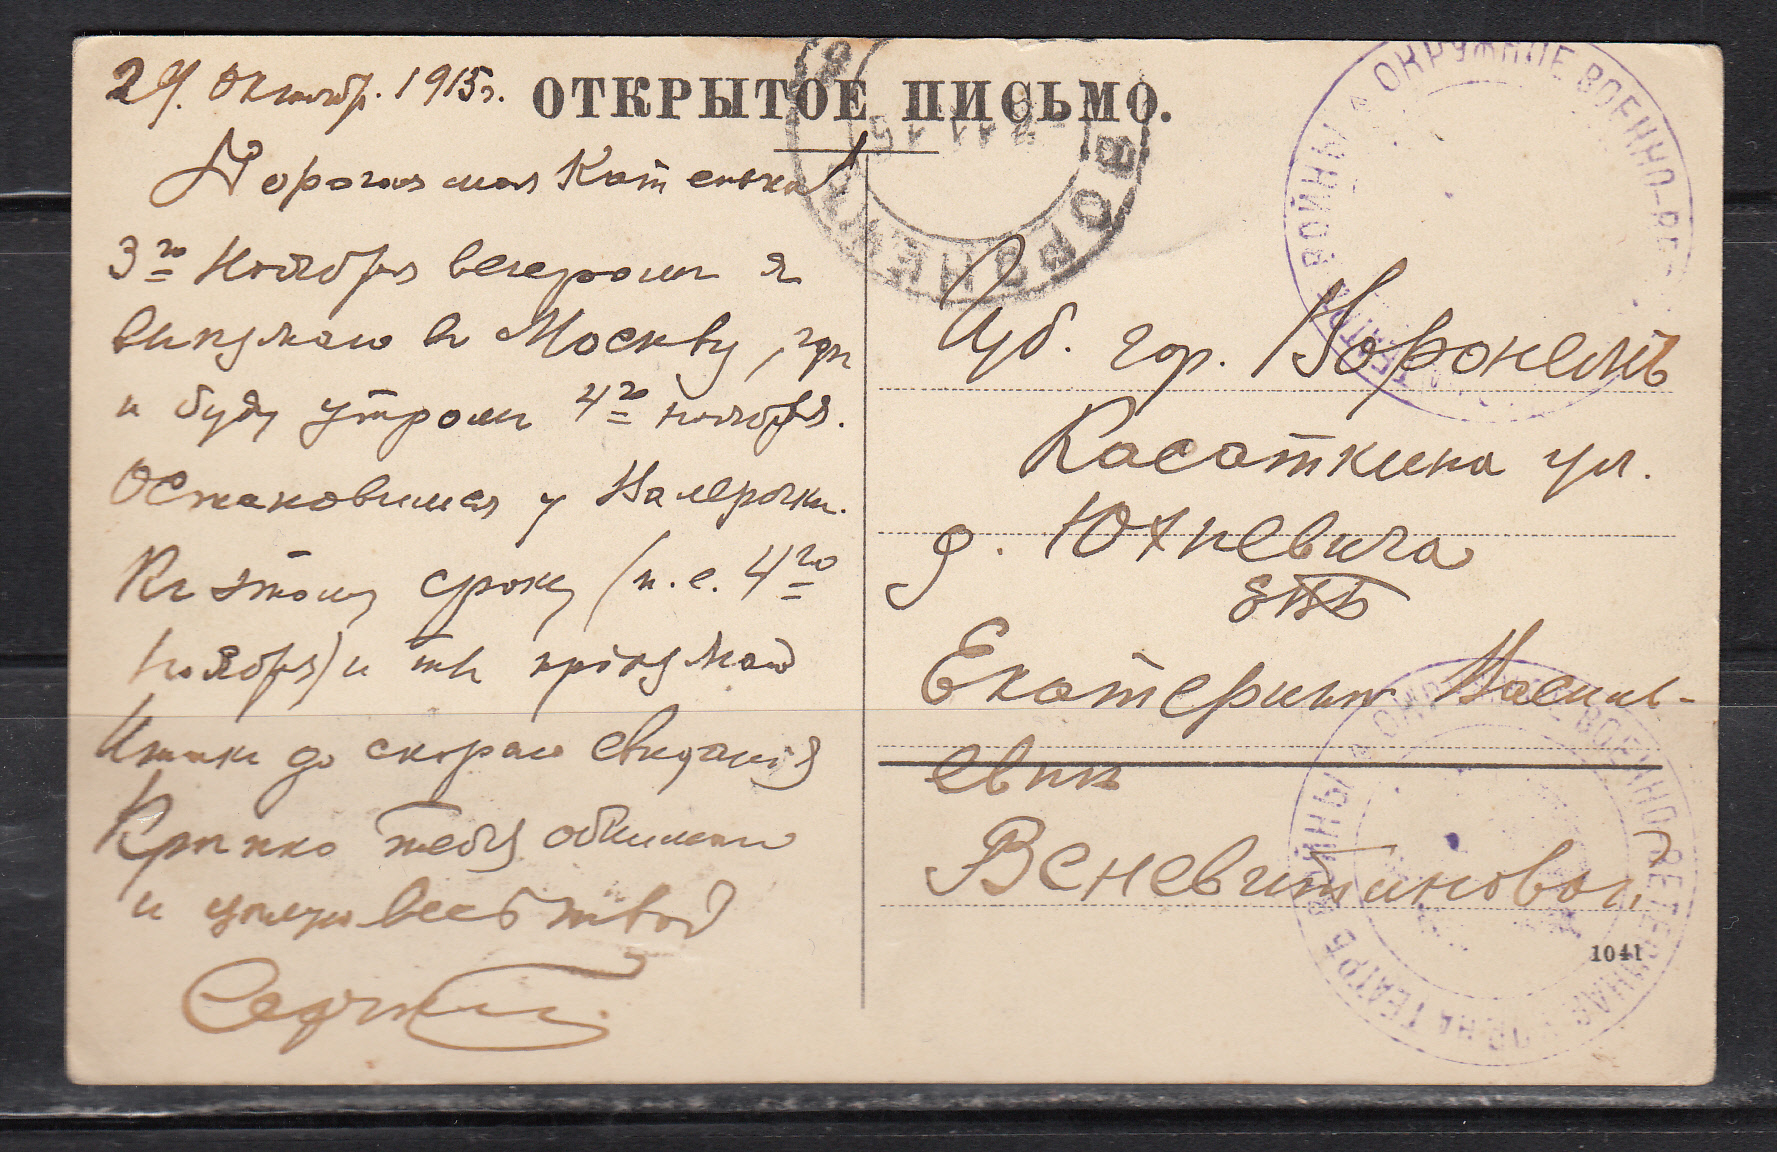 29. Октябр. 1915 г.
ОТКРЫТОЕ ПИСЬМО.
Дорогая моя Катенька!
3го Ноября вечером я
выѣзжаю в Москву, гдѣ
и буду утром 4го ноября.
Остановимся у Валерочки.
Къ этому сроку (т.е. 4го
ноября) и ты пріѣзжай
Итакъ до скораго свиданія
Крѣпко тебя обнимаю
и цѣлую весь твой
Сергѣй
Губ. гор. Воронежъ
Касаткина ул.
д. Юхневича
ЕВБ
Екатеринѣ Василь-
евнѣ
Веневитиновой
1041
ВОРОНЕЖЪ
11 15
ОКРУЖНОЕ ВОЕННО-ВЕ
ВОЙНЫ
ОКРУЖНОЕ ВОЕННО-ВЕТЕРИНАРНОЕ
НА ТЕАТРѢ ВОЙНЫ